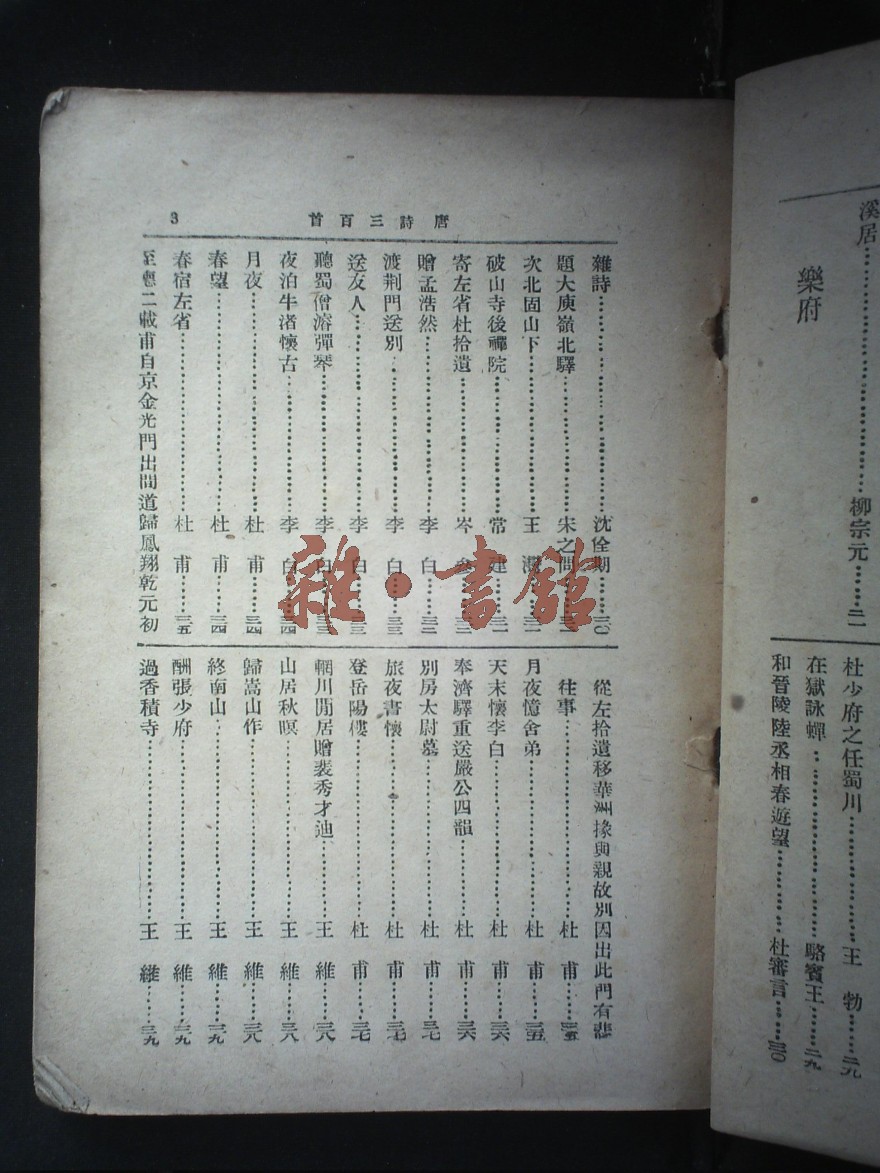 溪居……柳宗元……二一
樂府
杜少府之任蜀川……王 勃……二九
在獄詠蟬……駱賓王……二九
和晉陵陸丞相春遊望……杜審言……三〇
唐詩三百首
3
雜詩……沈佺期……三〇
題大庾嶺北驛……宋之問……三一
次北固山下……王 灣……三一
破山寺後禪院……常 建……三一
寄左省杜拾遺……岑
贈孟浩然……李 白……三二
渡荆門送別……李 白……三三
送友人……李 白……三三
聽蜀僧濬彈琴……李 白……三三
夜泊牛渚懷古……李 白……三四
月夜……杜 甫……三四
春望……杜 甫……三四
春宿左省……杜 甫……三五
至德二載甫自京金光門出間道歸鳳翔乾元初
從左拾遺移華洲掾與親故別因出此門有悲
往事……杜 甫……三五
月夜憶舍弟……杜 甫……三五
天末懷李白……杜 甫……三六
奉濟驛重送嚴公四韻……杜 甫……三六
別房太尉墓……杜 甫……三七
旅夜書懷……杜 甫……三七
登岳陽樓……杜 甫……三七
輞川閒居贈裴秀才迪……王 維……三八
山居秋暝……王 維……三八
歸嵩山作……王 維……三八
終南山……王 維……三九
酬張少府……王 維……三九
過香積寺……王 維……三九
雜·書館